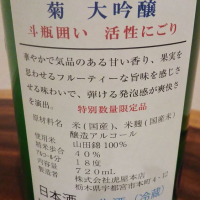 菊 大吟醸
斗瓶囲い 活性にごり
華やかで気品のある甘い香り、果実を
思わせるフルーティーな旨味を感じさ
せる味わいで、弾ける発泡感が爽快さ
を演出。
特別数量限定品
米(国産)、米麹(国産米)
醸造アルコール
使用米 山田錦100%
精米歩合 40%
18度
内容量 720ml
製造者 株式会社 虎屋本店
栃木県宇都宮市本町4-12
日本酒
(冷蔵)